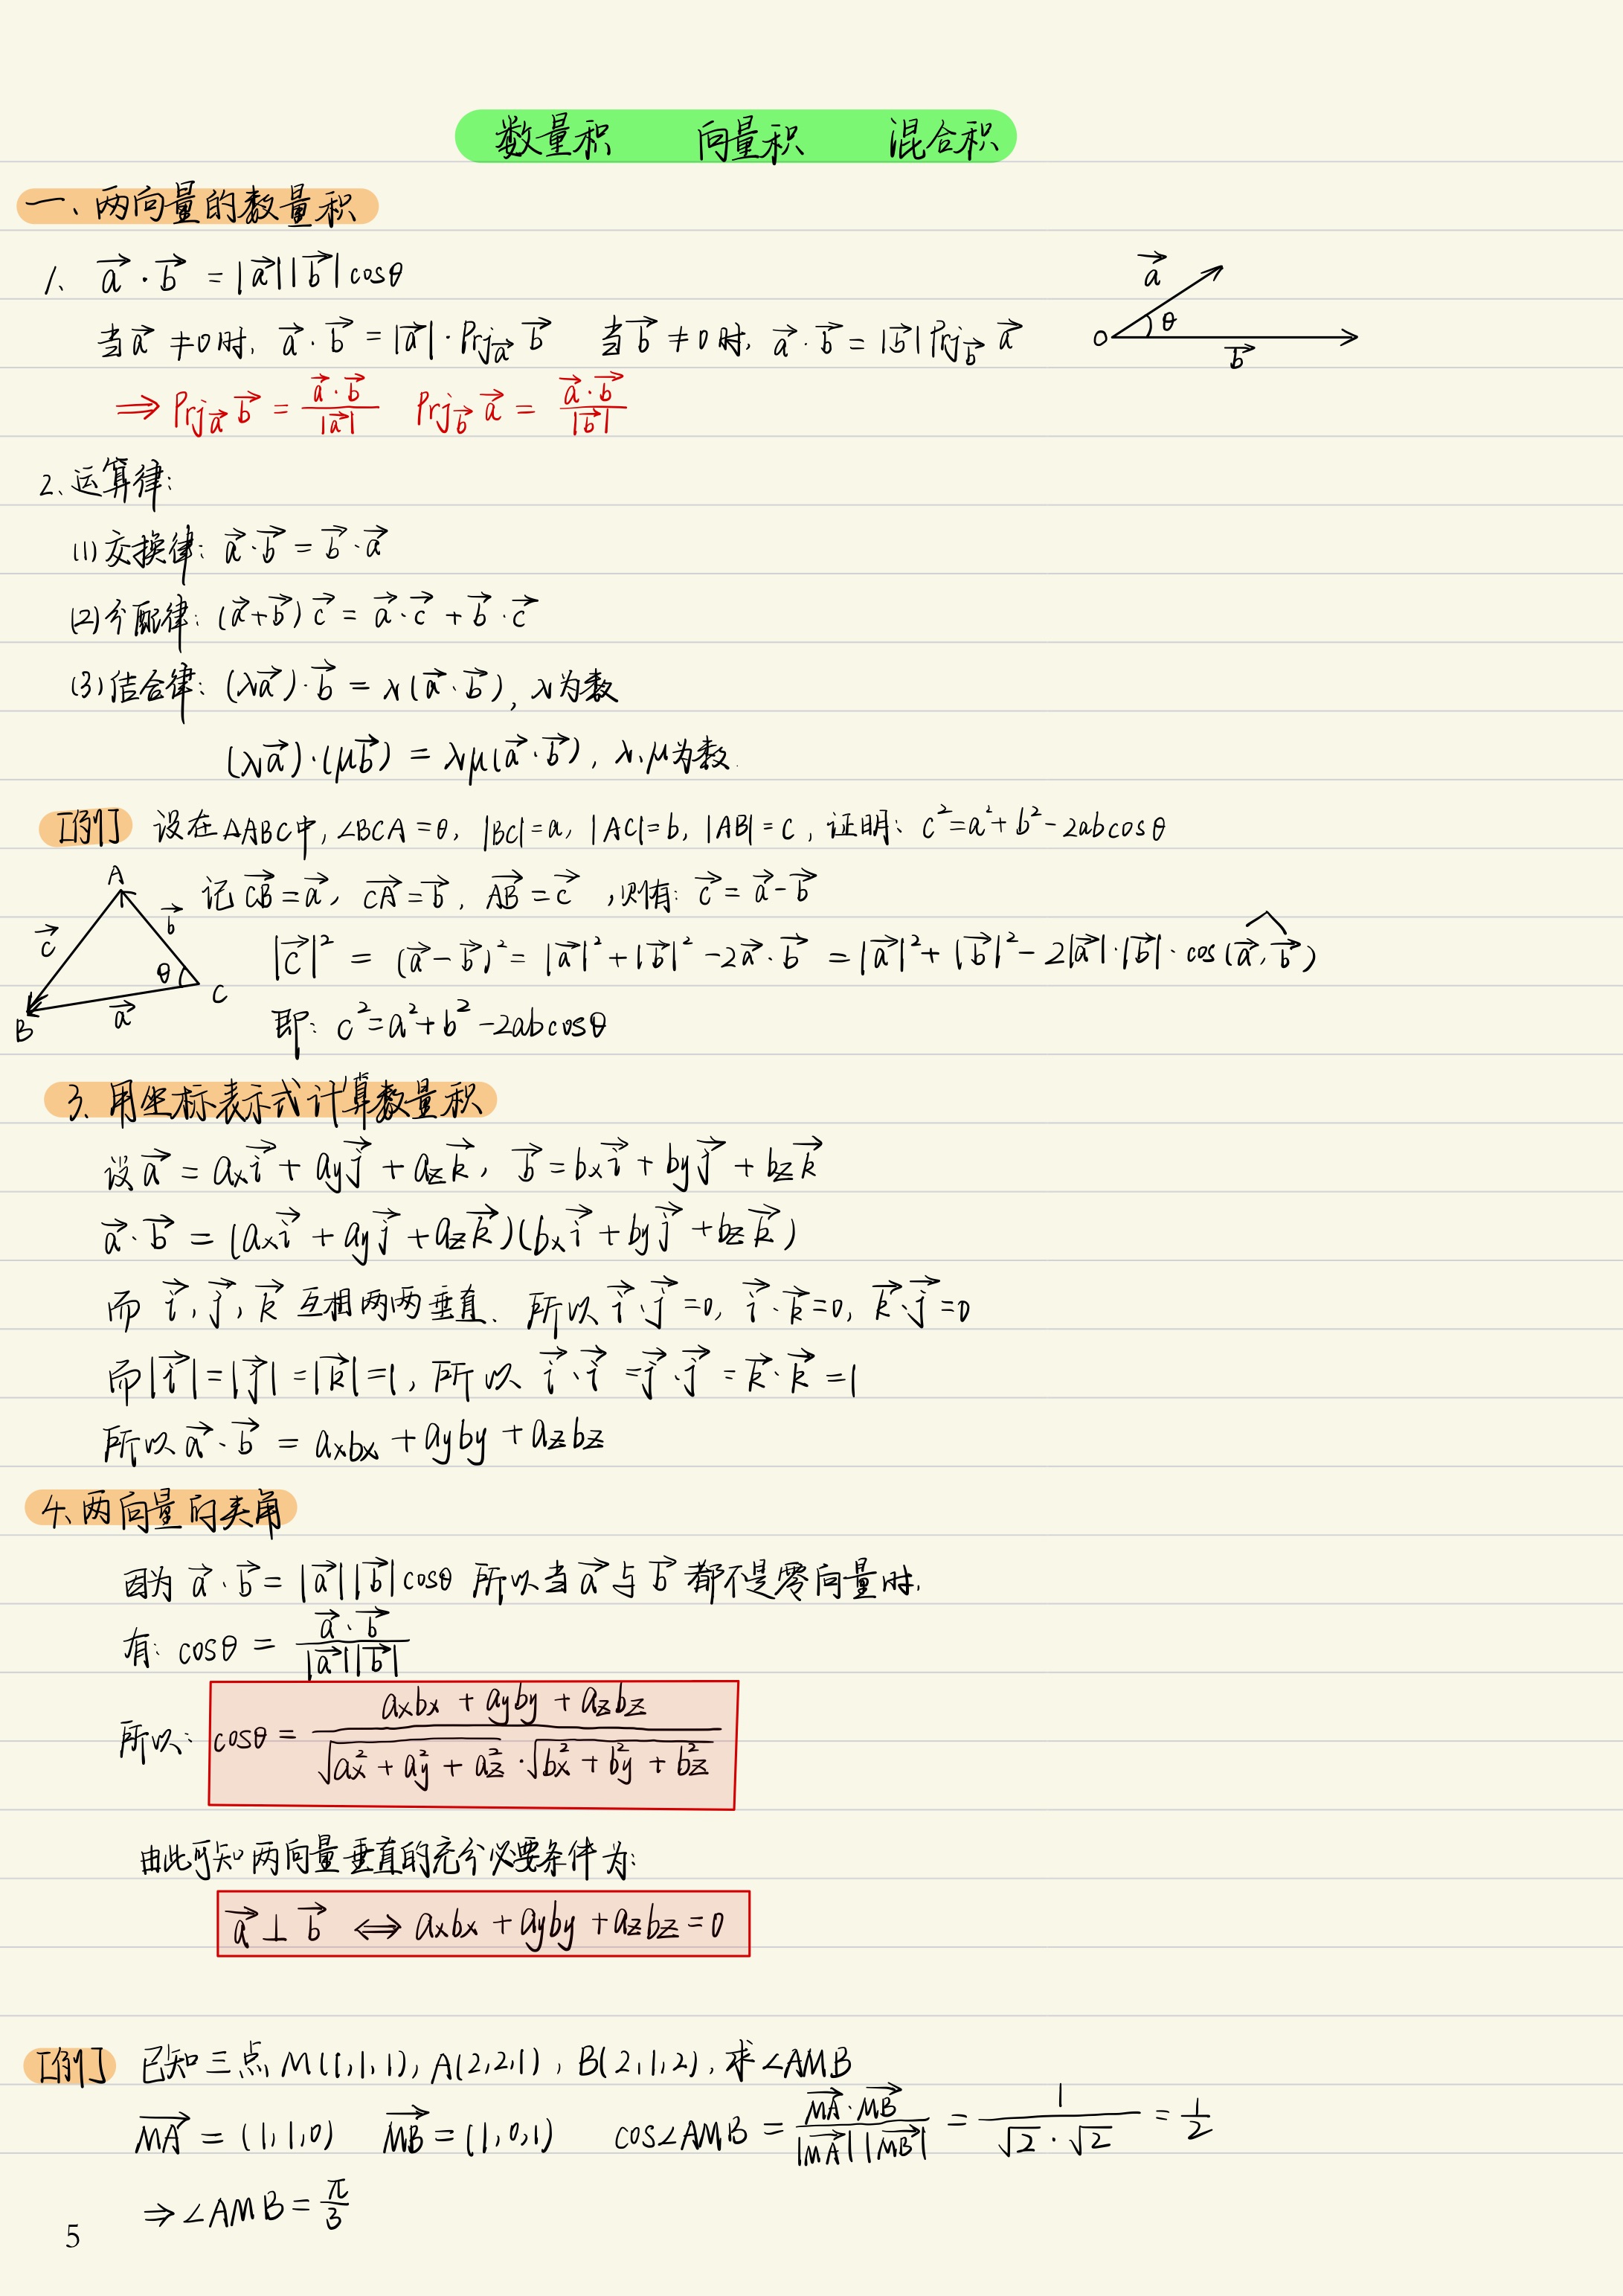 数量积 向量积 混合积
一、两向量的数量积
1. $\vec{a}\cdot\vec{b}=|\vec{a}||\vec{b}|\cos\theta$
当$\vec{a}\neq 0$时, $\vec{a}\cdot\vec{b}=|\vec{a}|\cdot Prj_{\vec{a}}\vec{b}$ 当$\vec{b}\neq 0$时, $\vec{a}\cdot\vec{b}=|\vec{b}|Prj_{\vec{b}}\vec{a}$
$\vec{a}$ θ O $\vec{b}$
$\Rightarrow Prj_{\vec{a}}\vec{b}=\frac{\vec{a}\cdot\vec{b}}{|\vec{a}|}$ $Prj_{\vec{b}}\vec{a}=\frac{\vec{a}\cdot\vec{b}}{|\vec{b}|}$
2、运算律:
(1)交换律: $\vec{a}\cdot\vec{b}=\vec{b}\cdot\vec{a}$
(2)分配律: $(\vec{a}+\vec{b})\vec{c}=\vec{a}\cdot\vec{c}+\vec{b}\cdot\vec{c}$
(3)结合律: $(\lambda\vec{a})\cdot\vec{b}=\lambda(\vec{a}\cdot\vec{b})$, λ为数
$(\lambda\vec{a})\cdot(\mu\vec{b})=\lambda\mu(\vec{a}\cdot\vec{b})$, λ、μ为数.
[例] 设在△ABC中, ∠BCA=θ, |BC|=a, |AC|=b, |AB|=c, 证明: $c^2=a^2+b^2-2ab\cos\theta$
记$\vec{CB}=\vec{a}$, $\vec{CA}=\vec{b}$, $\vec{AB}=\vec{c}$, 则有: $\vec{c}=\vec{a}-\vec{b}$
A $\vec{b}$ $\vec{c}$ θ C $\vec{a}$ B
$|\vec{c}|^2=(\vec{a}-\vec{b})^2=|\vec{a}|^2+|\vec{b}|^2-2\vec{a}\cdot\vec{b}=|\vec{a}|^2+|\vec{b}|^2-2|\vec{a}|\cdot|\vec{b}|\cdot\cos(\widehat{\vec{a},\vec{b}})$
即: $c^2=a^2+b^2-2ab\cos\theta$
3、用坐标表示式计算数量积
设$\vec{a}=a_x\vec{i}+a_y\vec{j}+a_z\vec{k}$, $\vec{b}=b_x\vec{i}+b_y\vec{j}+b_z\vec{k}$
$\vec{a}\cdot\vec{b}=(a_x\vec{i}+a_y\vec{j}+a_z\vec{k})(b_x\vec{i}+b_y\vec{j}+b_z\vec{k})$
而 $\vec{i},\vec{j},\vec{k}$ 互相两两垂直、所以$\vec{i}\cdot\vec{j}=0$, $\vec{i}\cdot\vec{k}=0$, $\vec{k}\cdot\vec{j}=0$
而$|\vec{i}|=|\vec{j}|=|\vec{k}|=1$, 所以 $\vec{i}\cdot\vec{i}=\vec{j}\cdot\vec{j}=\vec{k}\cdot\vec{k}=1$
所以$\vec{a}\cdot\vec{b}=a_xb_x+a_yb_y+a_zb_z$
4、两向量的夹角
因为 $\vec{a}\cdot\vec{b}=|\vec{a}||\vec{b}|\cos\theta$ 所以当$\vec{a}$与$\vec{b}$都不是零向量时,
有: $\cos\theta=\frac{\vec{a}\cdot\vec{b}}{|\vec{a}||\vec{b}|}$
所以: $\cos\theta=\frac{a_xb_x+a_yb_y+a_zb_z}{\sqrt{a_x^2+a_y^2+a_z^2}\cdot\sqrt{b_x^2+b_y^2+b_z^2}}$
由此可知两向量垂直的充分必要条件为:
$\vec{a}\perp\vec{b}\Leftrightarrow a_xb_x+a_yb_y+a_zb_z=0$
[例] 已知三点M(1,1,1), A(2,2,1), B(2,1,2), 求∠AMB
$\vec{MA}=(1,1,0)$ $\vec{MB}=(1,0,1)$ $\cos\angle AMB=\frac{\vec{MA}\cdot\vec{MB}}{|\vec{MA}||\vec{MB}|}=\frac{1}{\sqrt{2}\cdot\sqrt{2}}=\frac{1}{2}$
$\Rightarrow\angle AMB=\frac{\pi}{3}$
5